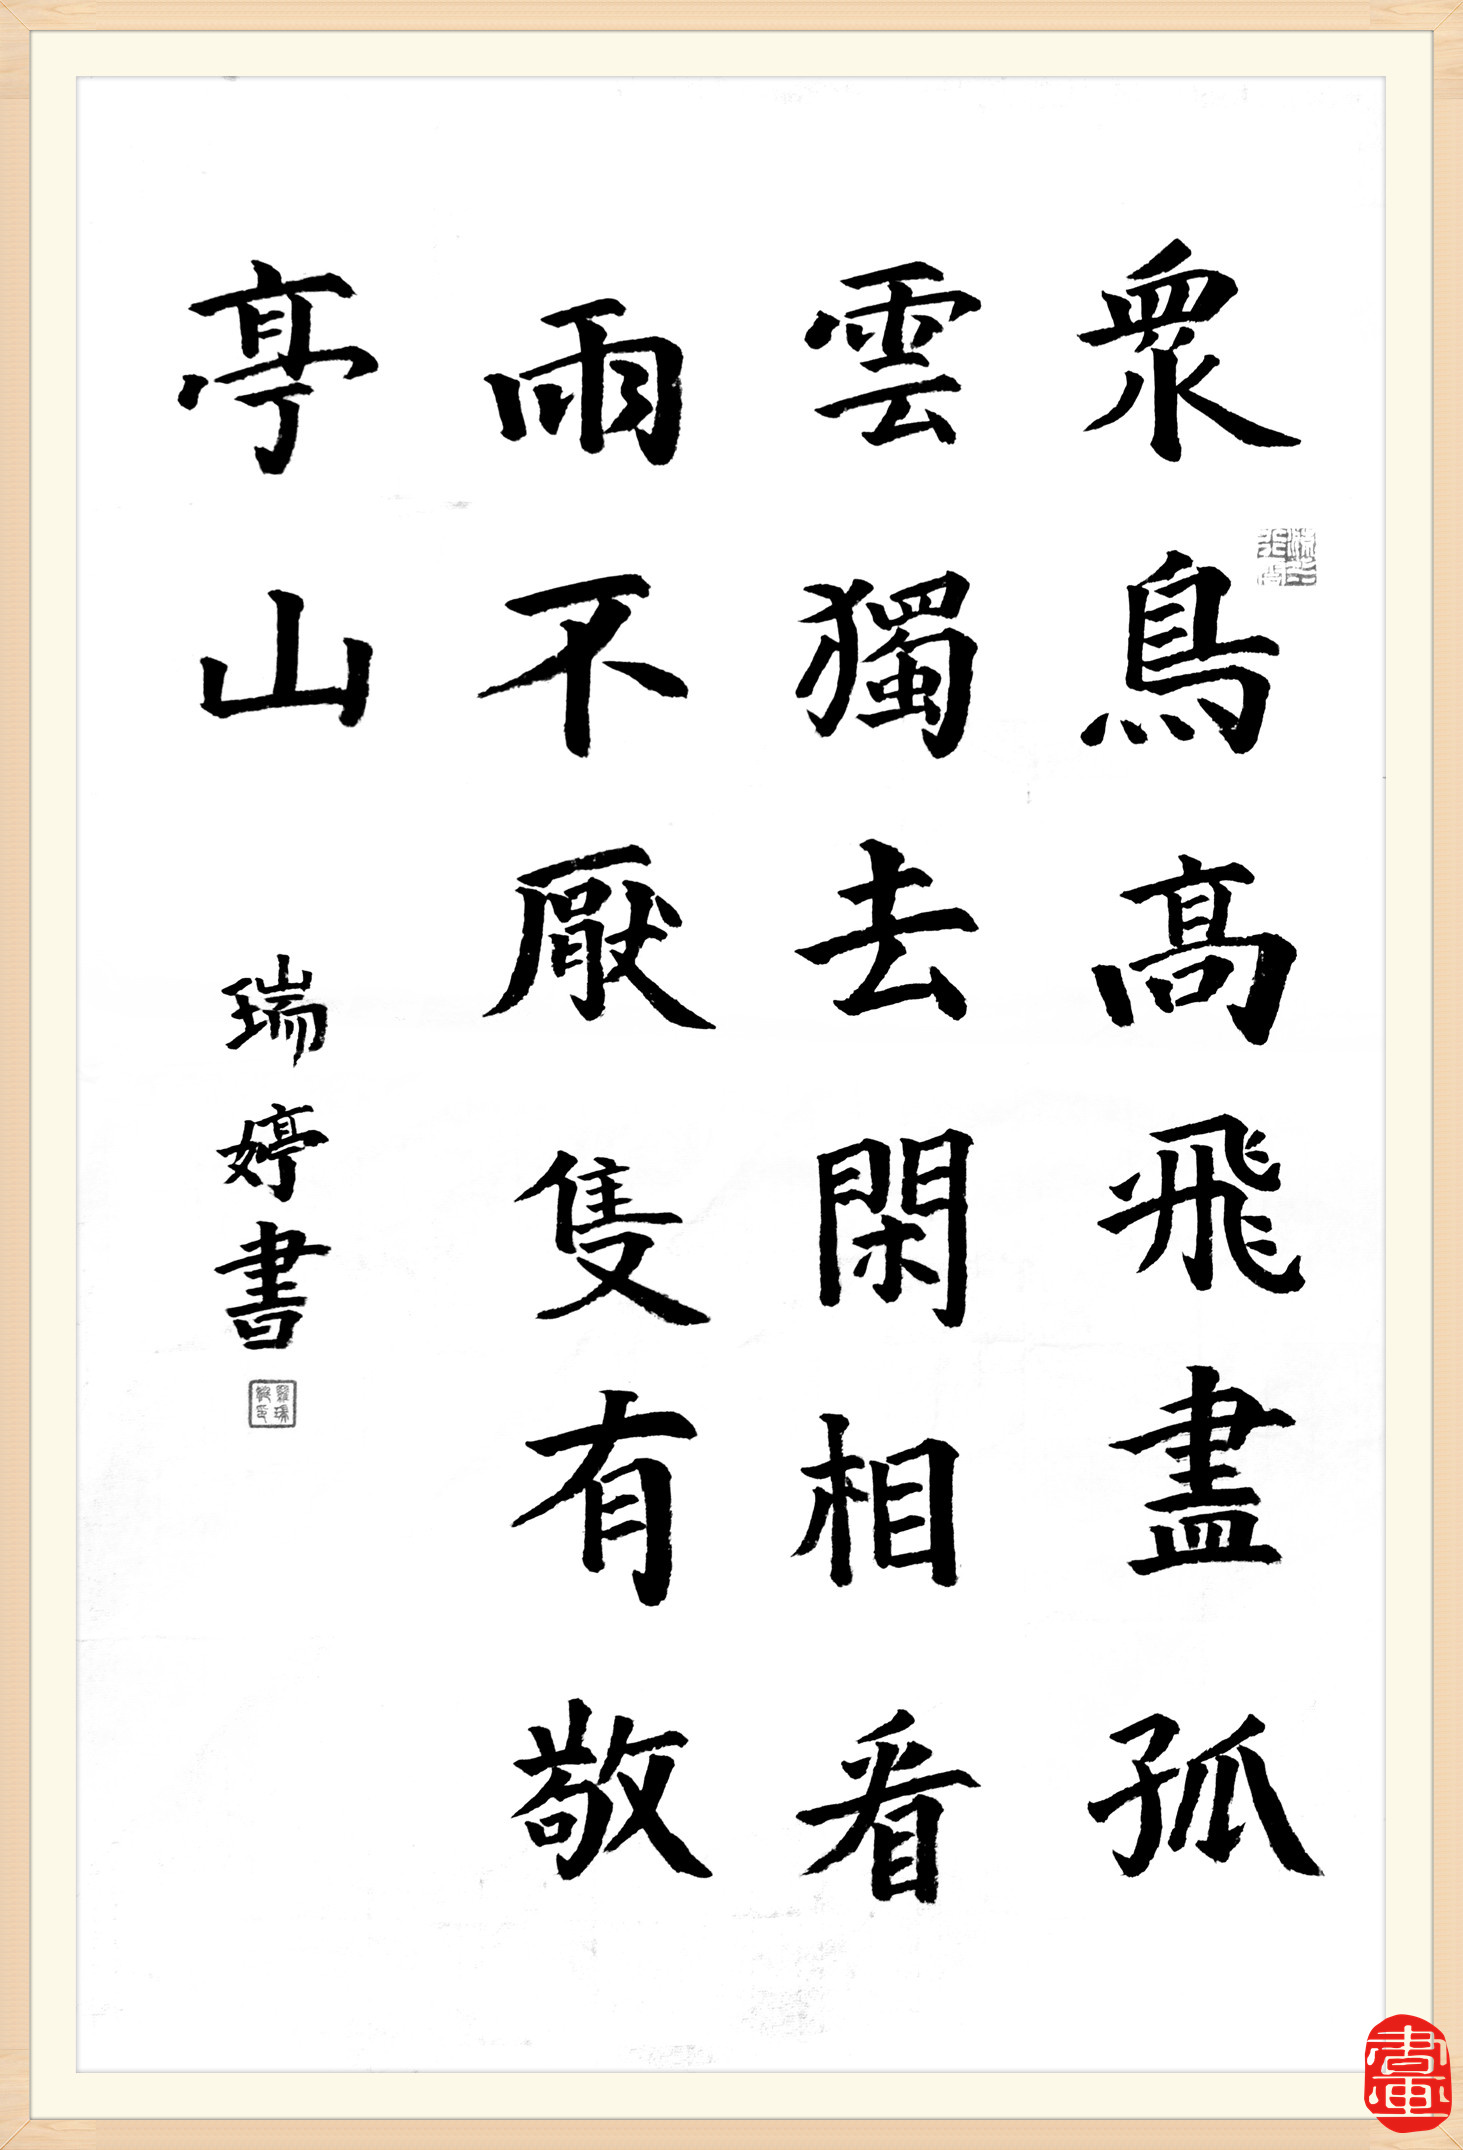 衆鳥高飛盡孤
雲獨去閑相看
兩不厭隻有敬
亭山
瑞婷書